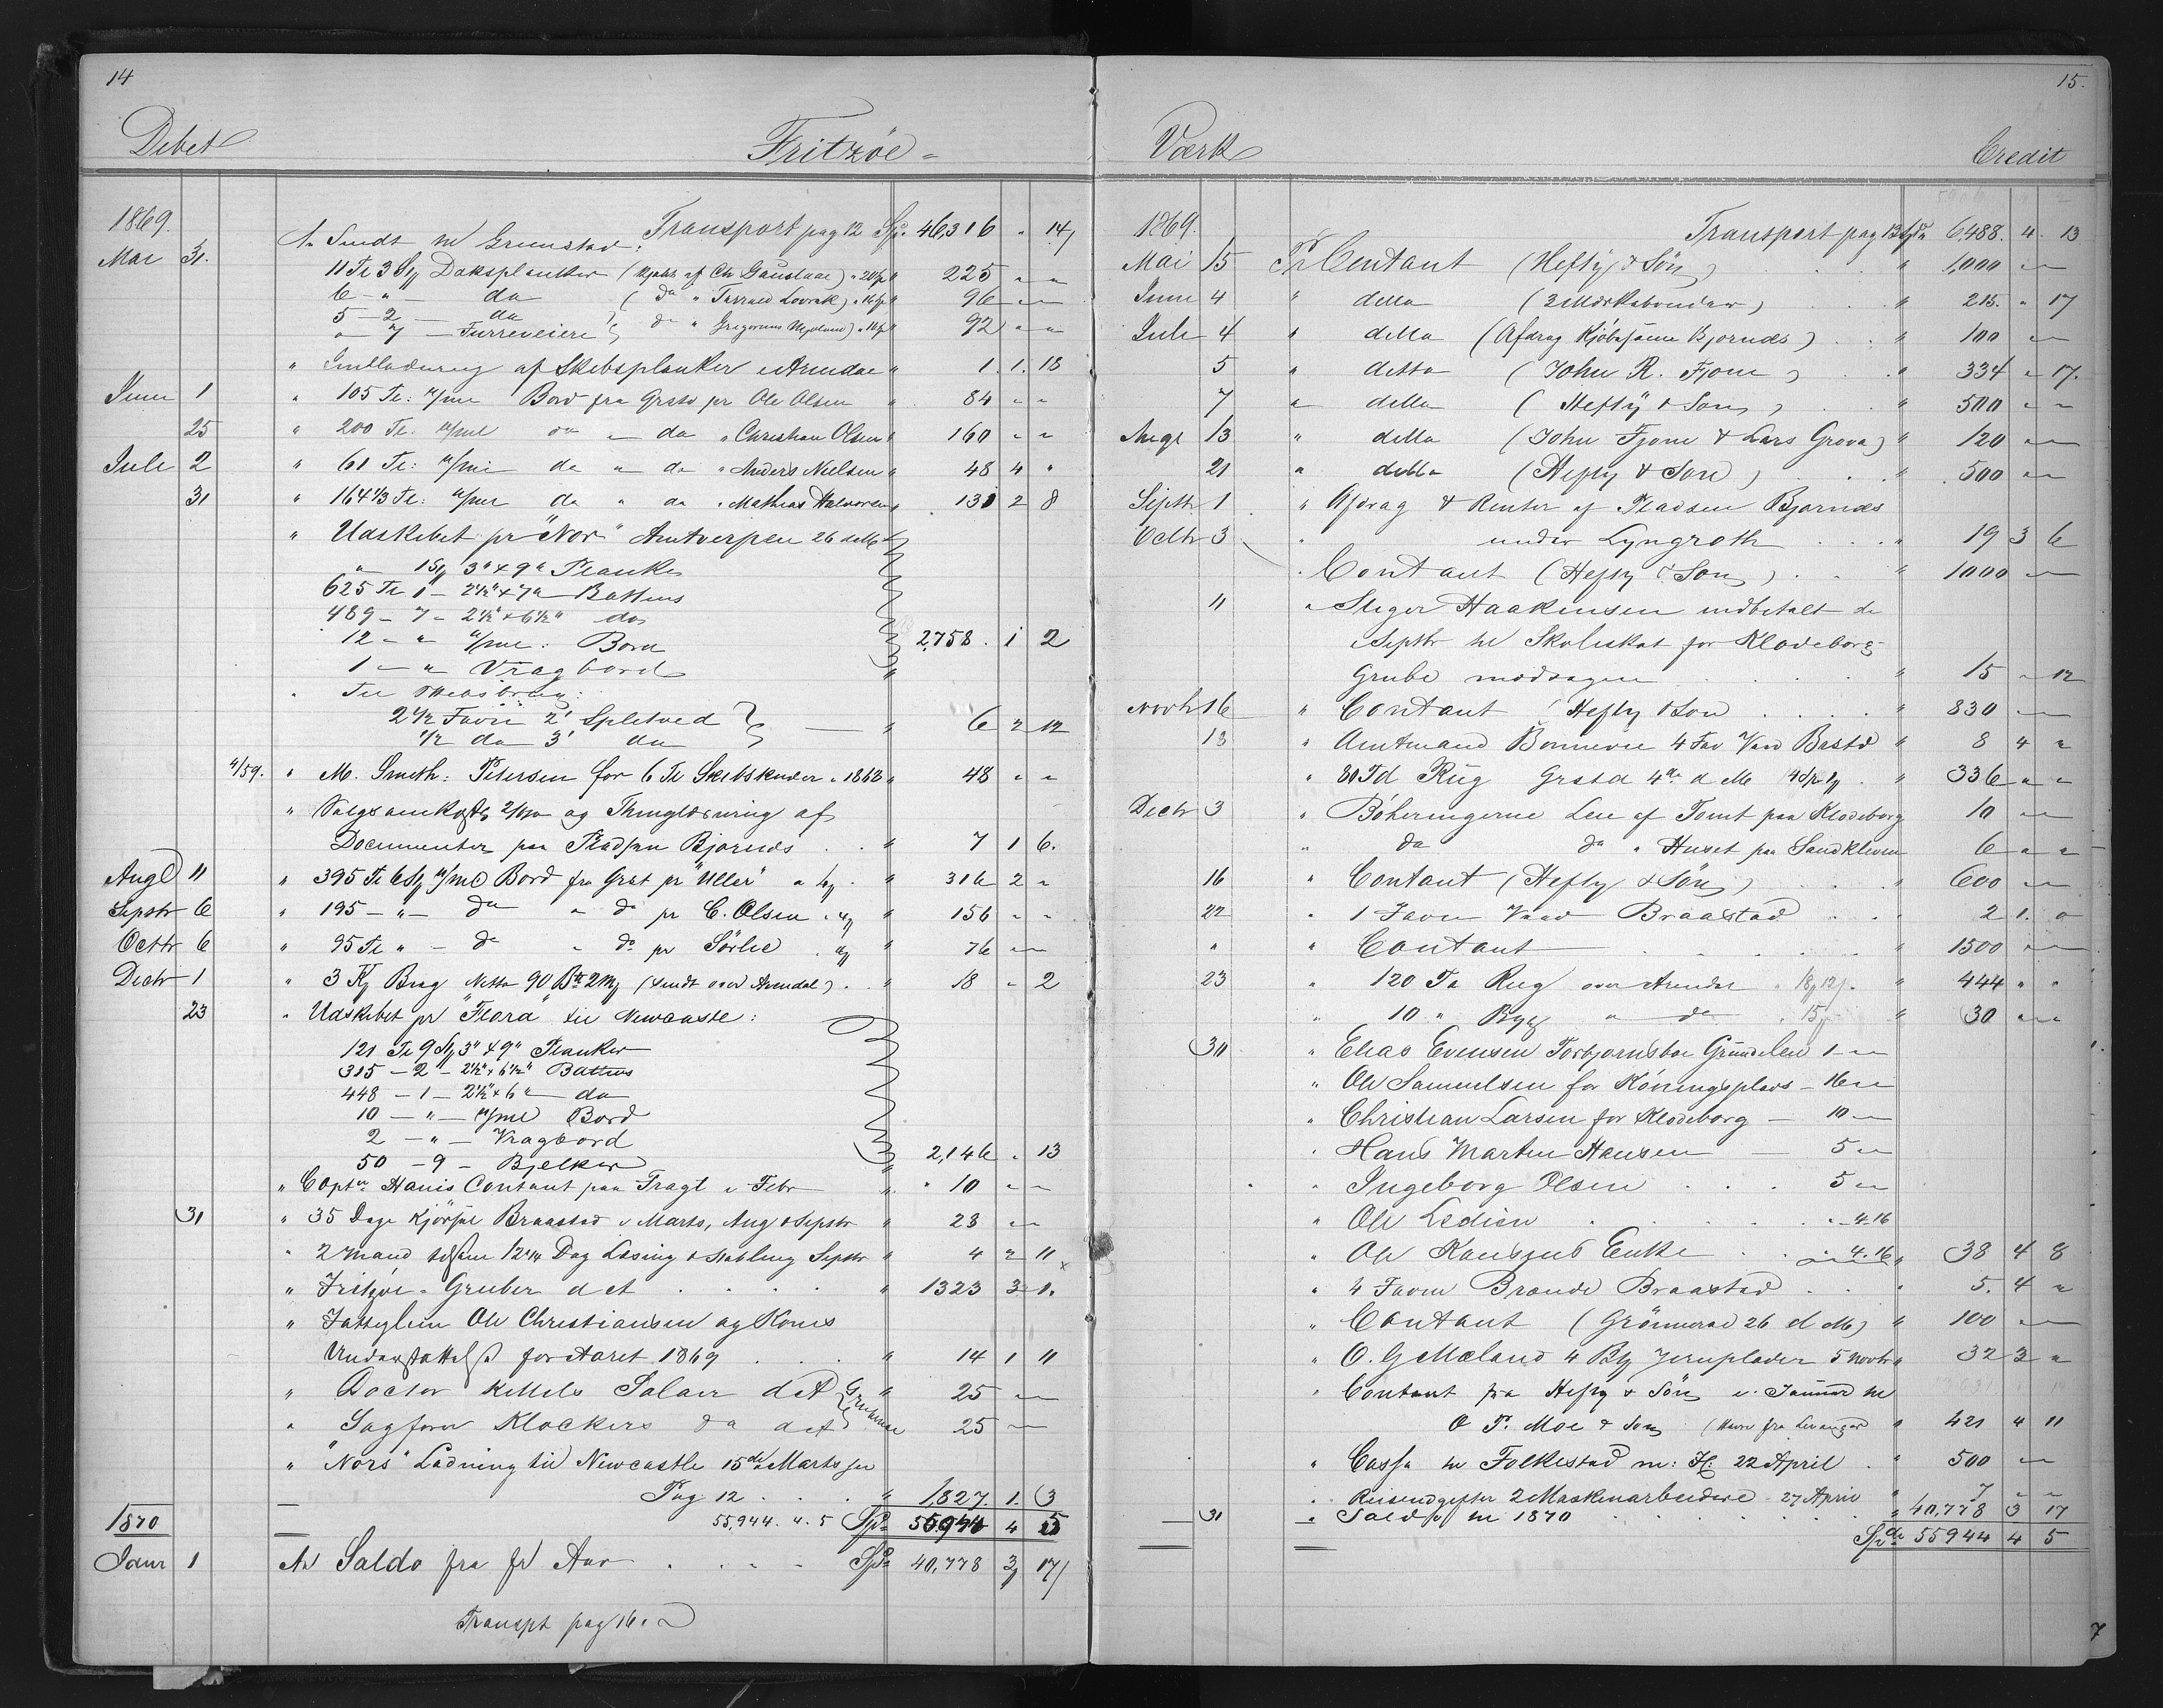 14
Debet Fritzöe =
1869. Transport pag 12 Spd. 46,316 " 14
Mai 31. An Sendt til Grimstad:
11 Tl 3 St Daksplanker ( af Chr Gauslaae) 225 " "
6 - " - do ( do " Tarrald Lovrak) 96 " "
5 - 2 - do
" 7 - Furreveiere do " Gregorius Mjølund) 92 " "
" Indladning af Skibsplanker i Arendal " 1. 1. 18
Juni 1 " 105 Tl: Bord fra Grstd pr Ole Olsen " 84 " "
25 " 200 Tl. do " do " Christian Olsen " 160 " "
Juli 2 " 61 Tl: do " do " Anders Nielsen " 48 4 "
31 " 164 1/3 Tl: do " do " Mathias Halvorsen " 131 2 8
" Udskibet pr "Nor" Antverpen 26 dM
" 1 St 3" x 9" Planker
625 Tl 1 - 2 1/2" x 7" Battens
489 - 7 - 2 1/2" x 6 1/2" do
12 - " Bord 2,758. 1 2
1 - " Vragbord
Til
2 1/2 Favn 2' Spletved
1/2 do 3' do " 6 2 12
4/59. " M. Smith: Petersen for 6 Tl Skibsknæer i 1868 " 48 " "
" Salgsomkostn og Thinglæsning af
Documenter paa Pladsen Bjørnes . . " 7 1 6.
Augt 11 " 395 Tl 6 St Bord fra Grst pr "Uller" " 316 2 "
Septbr 6 " 195 - " - do " do pr C. Olsen " 156 " "
Octbr 6 " 95 Tl " - do " do pr Sörlie " 76 " "
Decbr 1 " 3 Kg Brag Netto 90 (sendt over Arendal) . " 18 " 2
23 " Udskibet pr "Flora" til Newcastle:
121 Tl 9 St 3" x 9" Planker
315 - 2 - 2 1/2" x 6 1/2" Battens
448 - 1 - 2 1/2" x 6" do
10 - " - Bord
2 - " - Vragbord
50 - 9 - Bjelker 2,146 " 13
" Captn Hanis Contant paa Fragt i Febr " 10 " "
31 " 35 Dage Kjørsel Braastad i Marts, Aug & Septbr " 23 " "
" 2 Mand tilsam 12 Dag Læsing & Stabling Septbr " 4 2 11
" Fritzöe - Gruber d et . . . . " 1323 3 1.
" Fattiglem Ole Christiansen og Kones
Understøttelse for Aaret 1869 . . . " 14 1 11
" Doctor Kittels Salair d A " 25 " "
" Sagfører Klockers do d A Gruberne 25 " "
" "Nors" Ladning til Newcastle 15de Marts
Pag 12 . . . " 1,827. 1. 3
55,944. 4. 5 Spd. 55944 4 5
1870
Janr 1 An Saldo fra f A Aar . . . Spd 40,778 3 17
Transpt pag 16.
15.
Værk Credit
1869. Transport pag 13 Spd 6,488. 4. 13
Mai 15 Pr Contant (Hefty & Sön) " 1,000 " "
Juni 4 " detto " 215. " 17
Juli 4 " detto (Afdrag Kjöbesum Bjørndes) . . " 100 " "
5 " detto (John R. Fjone) . " 334 " 17.
7 " detto (Hefty & Søn) . . " 500 " "
Augt 13 " detto (John Fjone & Lars Grova) " 120 " "
21 " detto (Hefty & Søn) . . . " 500 " "
Septbr 1 " Afdrag & Renter af Pladsen Bjørnes
Octbr 3 under Lyngroth . . . " 19 3 6
" Contant (Hefty & Søn) . . " 1000 " "
11 " Steger Haakensen indbetalt de
i Septbr til Skoleskat for Klodeborg
Grube modtagen . . . . " 15 " 12
Novbr 16 " Contant (Hefty & Søn . . . " 830 " "
18 " Amtmand Bonnevie 4 Fav Ved Brstd " 8 4 "
" 80 Td Rüg Grstd 4de d M " 336 " "
Decbr 3 " Böheringerne Leie af Tomt paa Klodeborg 10 " "
" do do " Huset paa Sandkleven 6 " "
16 " Contant (Hefty & Sön) . . . " 600 " "
22 " 1 Favn Ved Braastad . . 2 1. 0
" " Contant . . . . . " 1500 " "
23 " 120 Td Rug over Arendal " 444 " "
" 10 " Byg " do " 30 " "
30 " Elias Evensen Torbjørnsboe Grundeleie 1 " "
" Ole Samuelsen for Köningsplads - 16 " "
" Christian Larsen for Klodeborg - 10 " "
" Hans Martin Hansen - 5 " "
" Ingeborg Olsen . . . 5 " "
" Ole Ledien . . . . . " 4. 16
" Ole Enke . . " 4. 16 " 38 4 8
" 4 Favn Brænde Braastad . . " 5. 4 "
" Contant (Grönnerød 26 d M) " 100 " "
" O. G Mæland 4 Jernplader 5 Novbr " 32 3 "
" Contant fra Hefty & Sön i Januar til
O P. Moe & Søn (Havre fra Levanger " 421 4 11
" Cassa til Folkestad m: H: 22 April . " 500 " "
" Reiseudgifter 2 Maskinarbeidere 27 April " 7 " "
31 " Saldo til 1870 . . . . . . " 40,778 3 17
Spd 55944 4 5